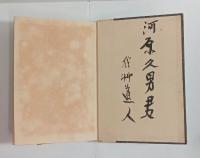 河原久男君
竹柳道人